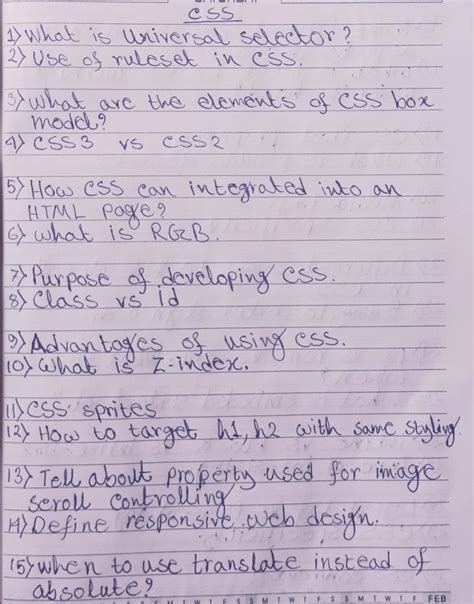 CSS
1) What is Universal selector?
2) Use of ruleset in CSS.
3) What are the elements of CSS box
model?
4) CSS3 vs CSS2
5) How CSS can integrated into an
HTML Page?
6) What is RGB.
7) Purpose of developing CSS.
8) Class vs id
9) Advantages of using CSS.
10) What is Z-index.
11) CSS sprites
12) How to target h1, h2 with same styling.
13) Tell about property used for image
scroll controlling
14) Define responsive web design.
15) when to use translate instead of
absolute?
FEB